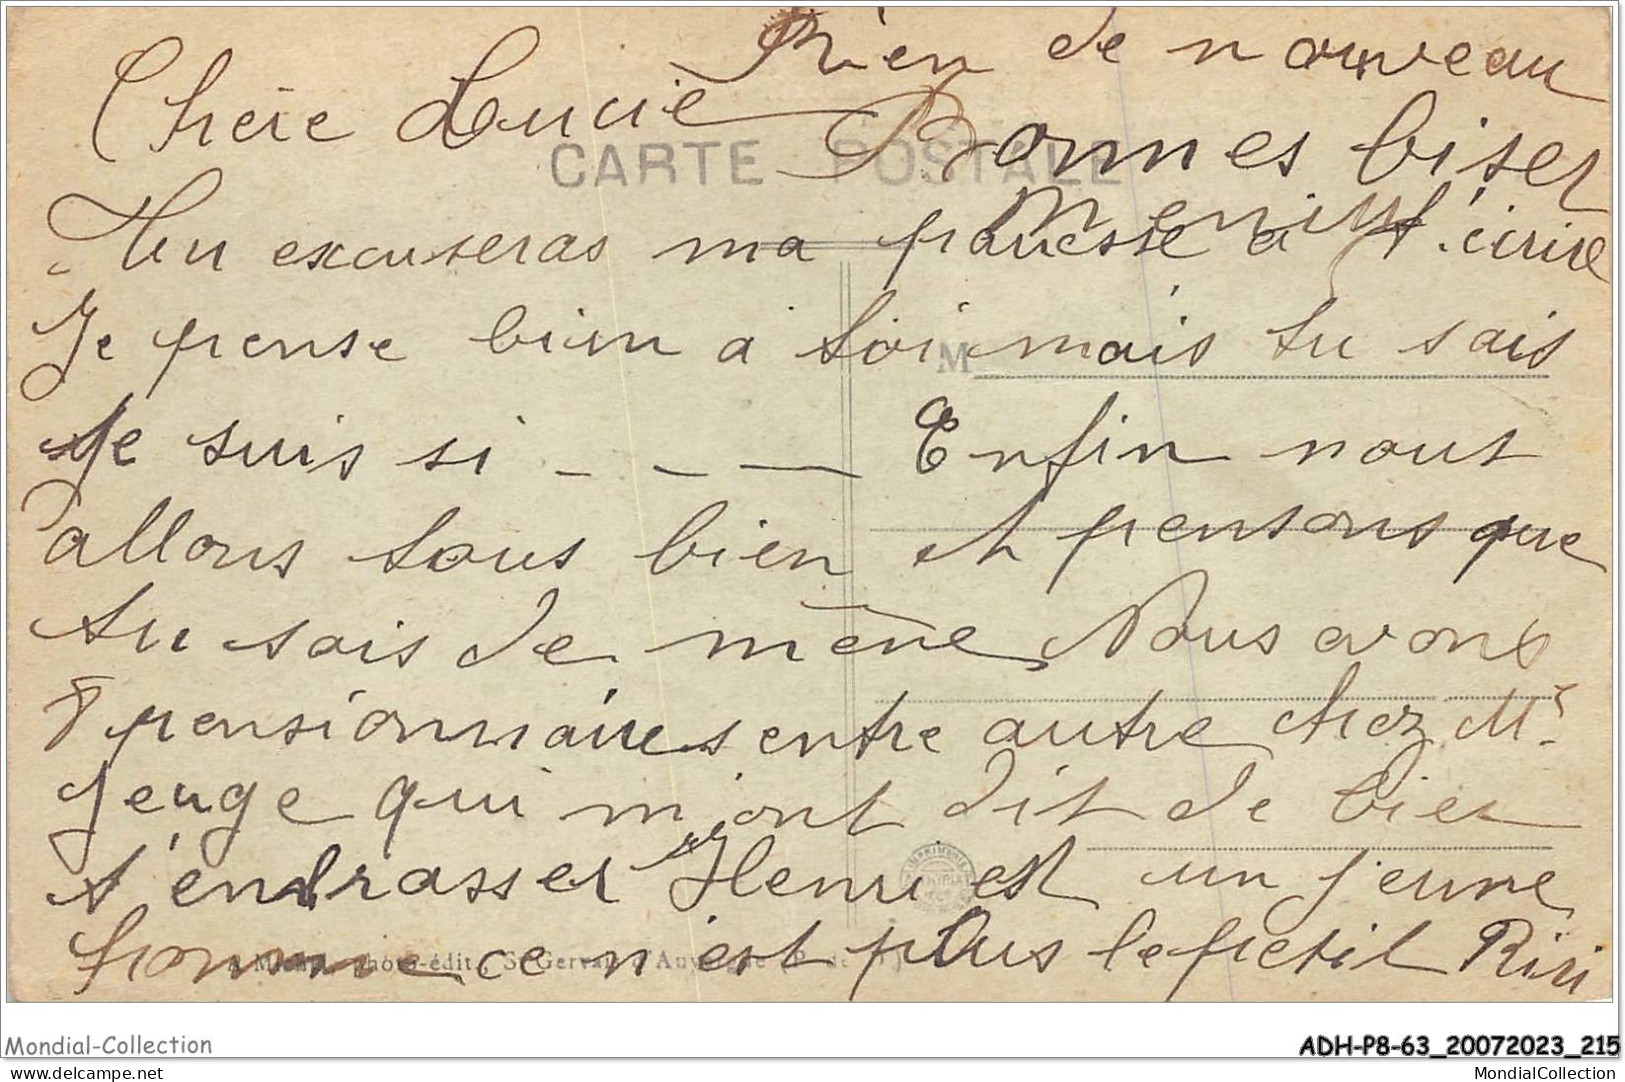 Rien de nouveau
Chère Lucie Bonnes bises
CARTE POSTALE
Tu excuseras ma paresse a t'écrire
Je pense bien a toi mais tu sais
M
Je suis si - - - Enfin nous
allons tous bien et pensons que
tu sais de mème Nous avons
8 pensionnaires entre autre chez Mr
Jeuge qui m'ont dit de bien
t'enbrasser Henri est un jeune
homme ce n'est plus le petit Riri
phot-édit., St-Gervais-d'Auvergne (P.-de-D.)
Mondial-Collection
ADH-P8-63_20072023_215
www.delcampe.net
MondialCollection